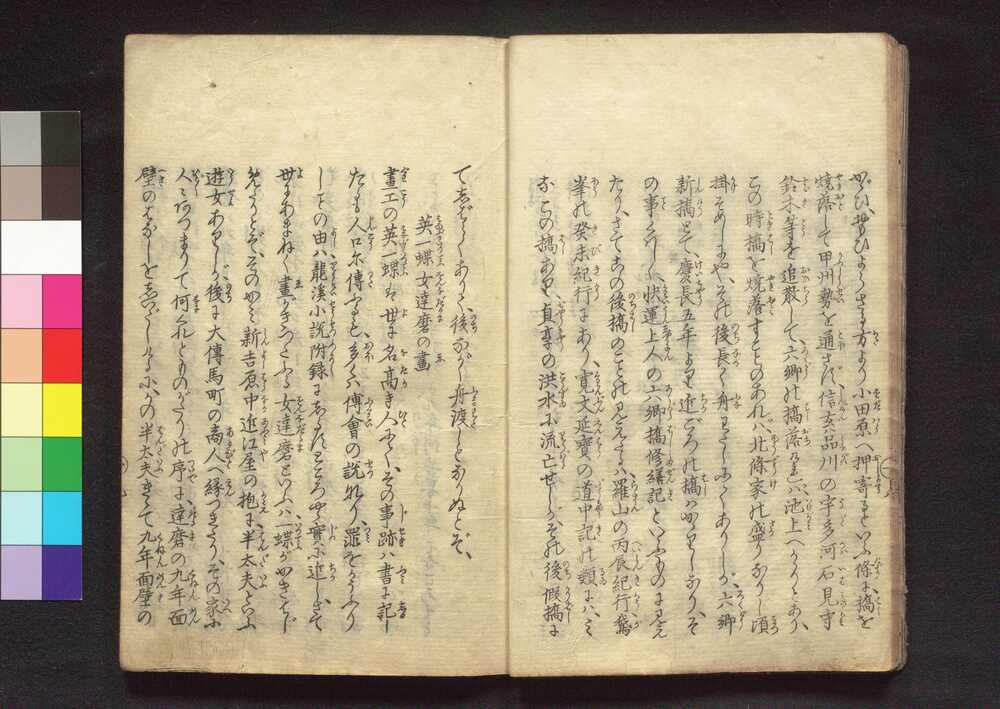 小田原へ押寄るといふ條に橋を
焼落して甲州勢を通さず、信玄品川の宇多河石見守
鈴木等を追散して、六郷の橋落ゆゑ、池上へかゝりとあり、
この時橋を焼落すことのあれバ、北條家の盛りなりし頃
掛そめしにや、その後長く舟わたしにてありしが、六郷
新橋とて、慶長五年より近ごろの橋ハかゝりしなり、そ
の事くハしくハ、状運上人の六郷橋修繕記といふものに見え
たり、さて、この後橋のことの見えしハ、羅山の丙辰紀行、鵞
峯の癸未紀行にあり、寛文延寶の道中記の類にハ、ミ
なこの橋あり、貞享の洪水に流亡せしが、その後假橋に
てしばらくありて、後ながく舟渡しとなりぬとぞ、
英一蝶女達磨の畫
畫工の英一蝶は世に名高き人にて、その事跡ハ書に記し
たるも人口に傳ふるも多くハ傅會の説なり、罪をかうふり
しことの由ハ龍溪小説附録にしるしたるところや實に近し、さて
世にあまねく畫がきつたふる女達磨といふハ一蝶がかきはじ
めしとぞ、そのかみ新吉原中近江屋の抱に半太夫といふ
遊女ありしが、後に大傳馬町の商人へ縁つきたり、その家に
人々あつまりて何くれとものがたりの序に、達磨の九年面
壁のはなしをしいでしかば、かの半太夫きゝて九年面壁の